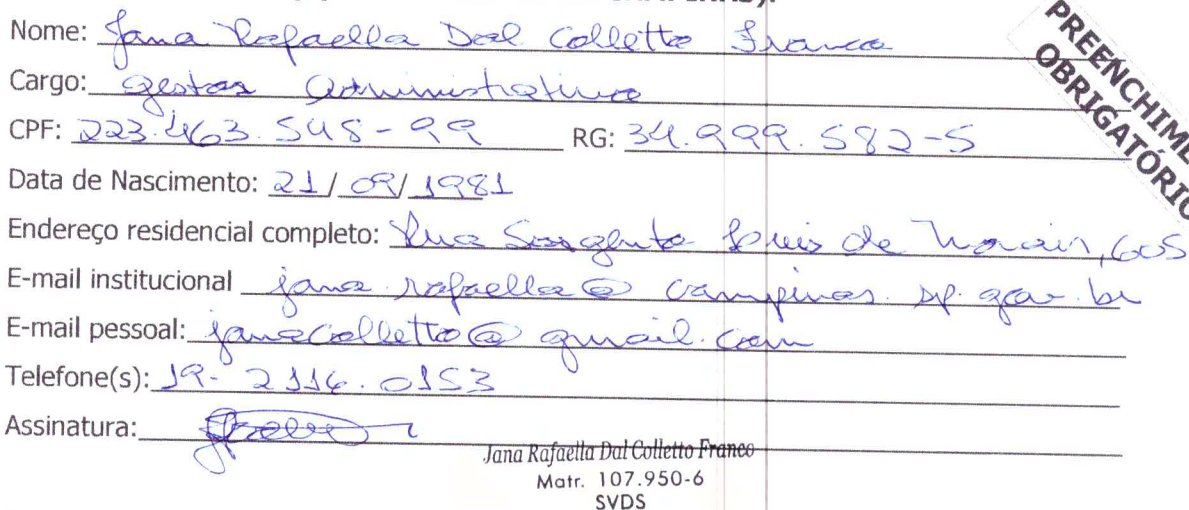 Nome: Jana Rafaella Dal Colletto Franco
Cargo: gestor administrativo
CPF: 223.463.548-99 RG: 34.999.582-5
Data de Nascimento: 21/09/1981
Endereço residencial completo: Rua Sargento Luis de Morais, 605
E-mail institucional jana.rafaella@campinas.sp.gov.br
E-mail pessoal: janacolletto@gmail.com
Telefone(s): 19-2116.0153
Assinatura:
Jana Rafaella Dal Colletto Franco
Matr. 107.950-6
SVDS
PREENCHIME
OBRIGATÓRIO